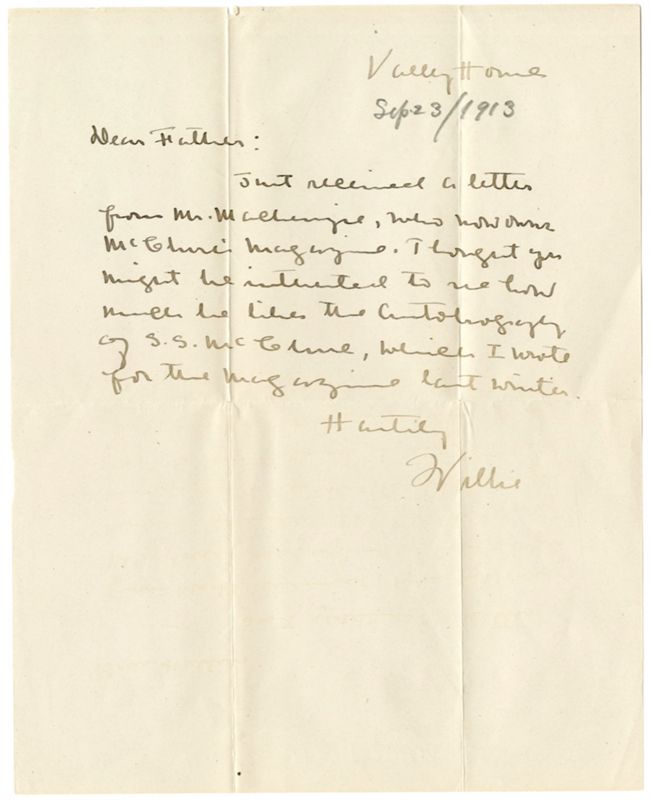 Valley Home
Sep 23/1913
Dear Father:
Just received a letter
from Mr. Mackenzie, who now owns
McClure's Magazine. Thought you
might be interested to see how
much he likes the Autobiography
of S.S. McClure, which I wrote
for the magazine last winter.
Hastily
Willie